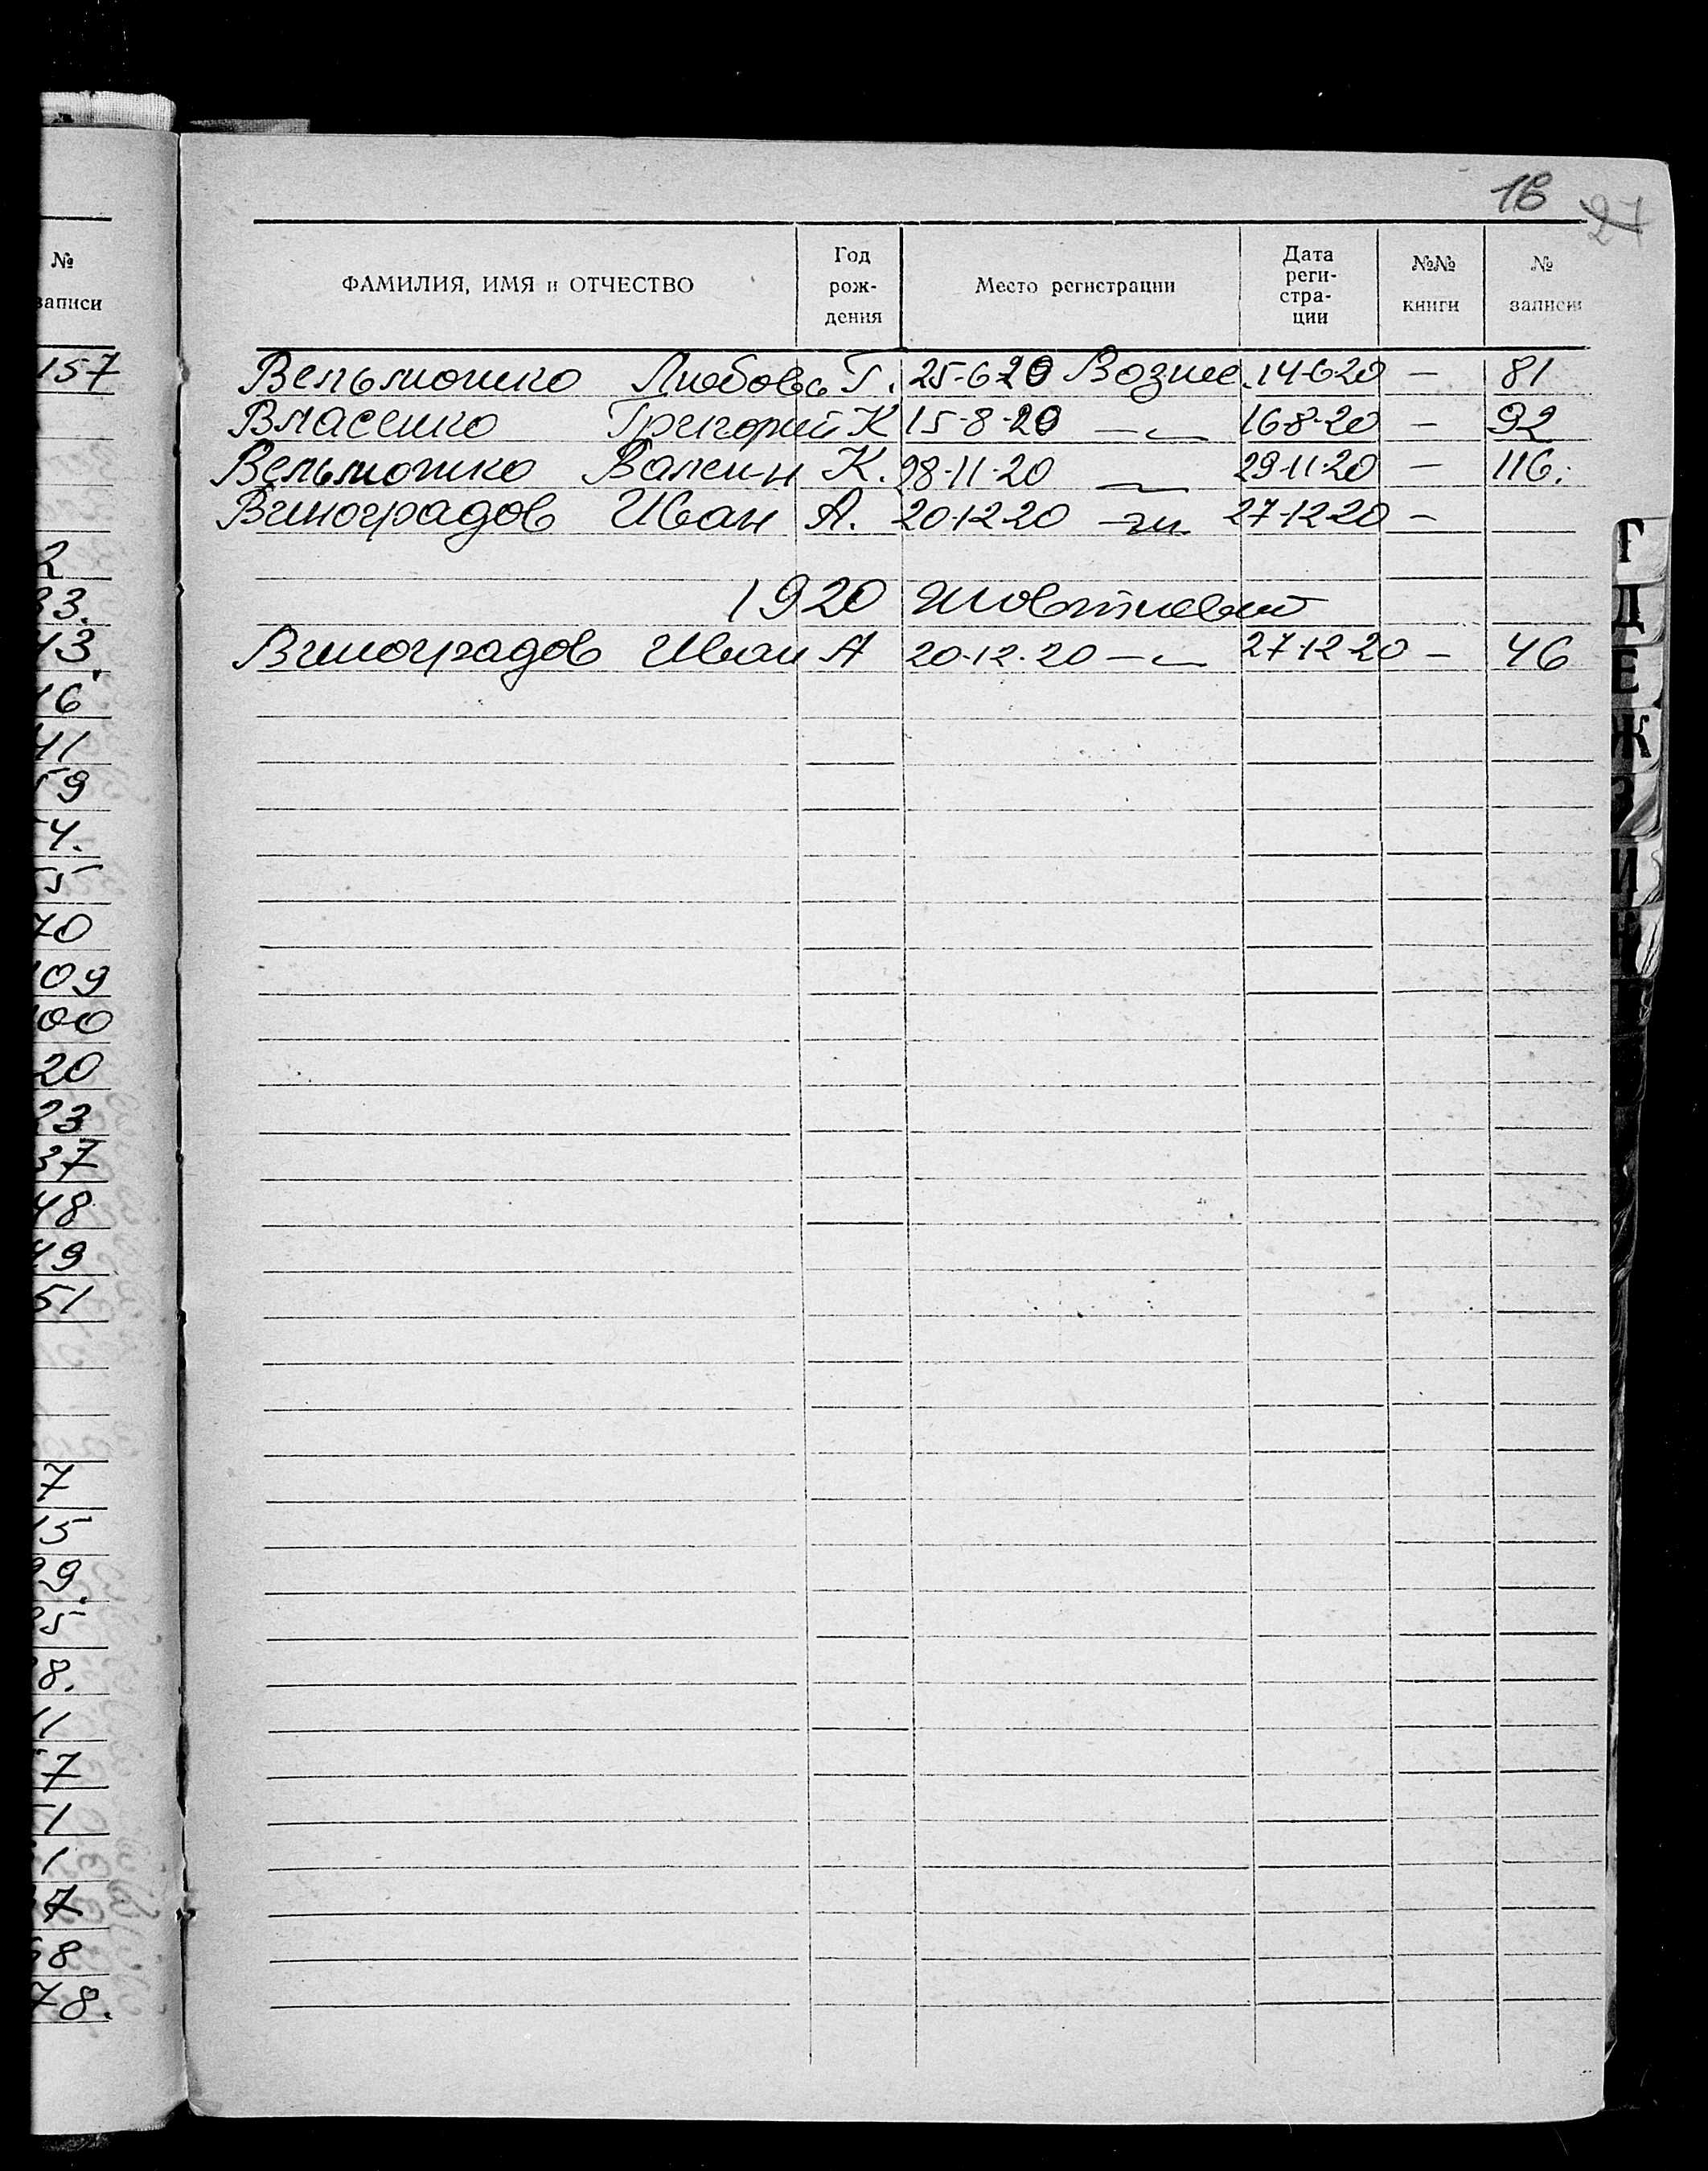 18 27
№ записи
ФАМИЛИЯ, ИМЯ и ОТЧЕСТВО Год рож- дения Место регистрации Дата реги- стра- ции №№ книги № записи
157
Вельможко Любовь Г. 25-6-20 Вознес. 14-6-20 — 81
Власенко Григорий К 15-8-20 —〃— 16-8-20 — 92
Вельможко Вален-н К. 28-11-20 —〃— 29-11-20 — 116.
Виноградов Иван А. 20-12-20 —〃— 27-12-20 —
1920 Жовтневый
Виноградов Иван А 20-12-20 —〃— 27-12-20 — 46
Г
Д
Е
Ж
З
И
2
33.
43.
16
41
59
4.
5
70
109
100
20
23
37
48
49
51
7
15
29.
25
8.
11
7
1
1
7
68
78.